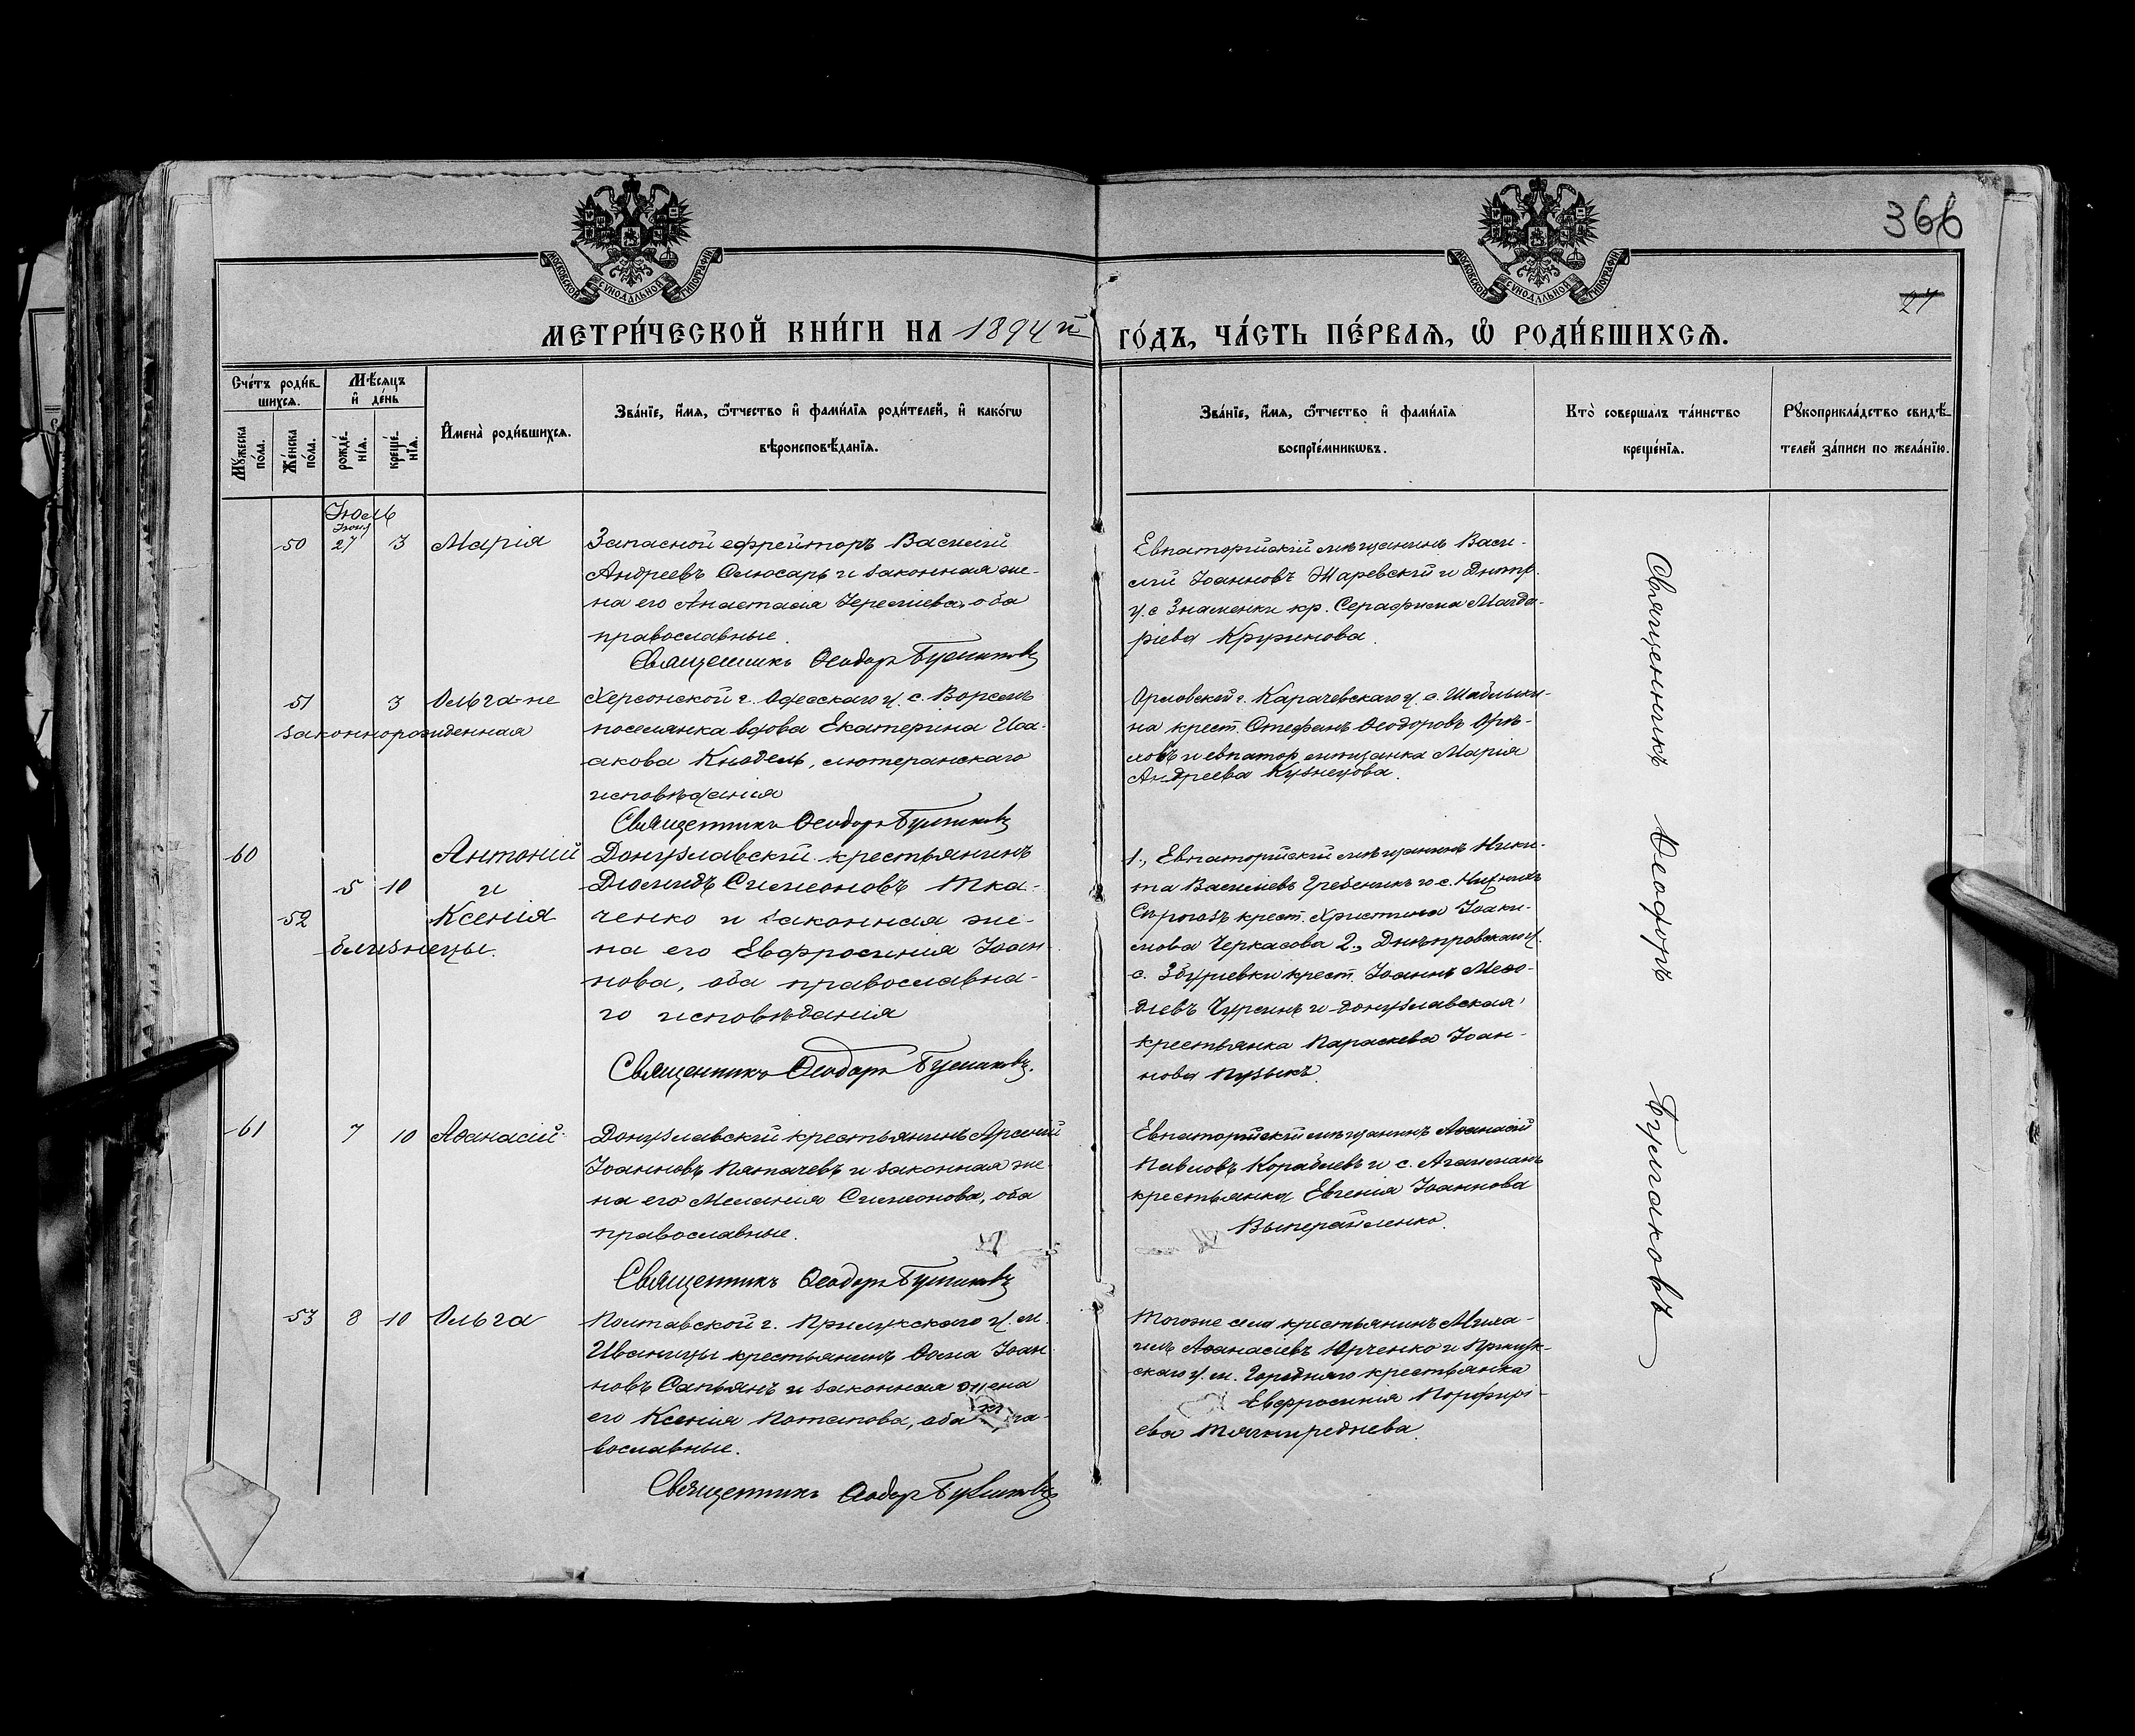 366
27
МОСКОВСКОЙ СѴНОДАЛЬНОЙ ТИПОГРАФІИ
МОСКОВСКОЙ СѴНОДАЛЬНОЙ ТИПОГРАФІИ
МЕТРИ́ЧЕСКОЙ КНИ́ГИ НА 1894 й ГО́ДЪ, ЧА́СТЬ ПЕ́РВАѦ, Ѡ҆ РОДИ́ВШИХСѦ.
Сче́тъ роди́в-
шихсѧ.
Мѣ́сѧцъ
и҆ де́нь
Мꙋ́жеска
по́ла.
Же́нска
по́ла.
рожде́-
нїѧ.
креще́-
нїѧ.
И҆мена̀ роди́вшихсѧ.
Зва́нїе, и҆́мѧ, ѻ҆́тчество и҆ фами́лїѧ роди́телей, и҆ како́гѡ
вѣроисповѣ́данїѧ.
Зва́нїе, и҆́мѧ, ѻ҆́тчество и҆ фами́лїѧ
воспрїе́мникѡвъ.
Кто̀ соверша́лъ та́инство
креще́нїѧ.
Рꙋкоприкла́дство свидѣ́-
телей за́писи по жела́нїю.
Іюль
Іюня
50 27 3 Марія
Запасной ефрейторъ Василій
Андреевъ Слюсарь и законная же-
на его Анастасія Иеремиева, оба
православные.
Священникъ Ѳеодоръ Булгаковъ
Евпаторійскій мѣщанинъ Васи-
лій Іоанновъ Шаревскій и Днѣпр.
у. с Знаменки кр. Серафима
Круткова.
51 3 Ольга-не
законнорожденная
Херсонской г. Одесскаго у. с. Вормсъ
поселянка вдова Екатерина Иса-
акова Кнодель, лютеранскаго
исповѣданія
Священникъ Ѳеодоръ Булгаковъ
Орловской г. Карачевскаго у. с.
на крест. Стефанъ Ѳеодоровъ Орѣ-
ловъ и евпатор. мѣщанка Марія
Андреева Кузнецова.
60 Антоній
5 10 и
52 Ксенія
близнецы.
Донузлавскій крестьянинъ
Диомидъ Симеоновъ Тка-
ченко и законная же-
на его Евфросинія Іоан-
нова, оба православна-
го исповѣданія
Священникъ Ѳеодоръ Булгаковъ.
1., Евпаторійскій мѣщанинъ Ники-
та Васильевъ Гребенникъ и с. Нижнихъ
Сѣрогозъ крест. Христина Іоаки-
мова Черкасова 2., Днѣпровскаго у.
с. Збурьевки крест. Іоаннъ Меѳо-
діевъ Чурсинъ и донузлавская
крестьянка Параскева Іоан-
нова Пузыкъ.
61 7 10 Аѳанасій
Донузлавскій крестьянинъ Арсеній
Іоанновъ Пятачевъ и законная же-
на его Меланія Симеонова, оба
православные.
Священникъ Ѳеодоръ Булгаковъ
Евпаторійскій мѣщанинъ Аѳанасій
Павловъ Кораблевъ и с. Агайманъ
крестьянка Евгенія Іоаннова
53 8 10 Ольга
Полтавской г. Прилукскаго у. м.
Иваницы крестьянинъ Ѳома Іоан-
новъ Сапьянъ и законная жена
его Ксенія Потапова, оба пра-
вославные.
Священникъ Ѳеодоръ Булгаковъ
Тогоже села крестьянинъ Миха-
илъ Аѳанасіевъ Юрченко и Прилук-
скаго у. м. Городняго крестьянка
Евфросинія Порфирі-
ева
Священникъ Ѳеодоръ Булгаковъ